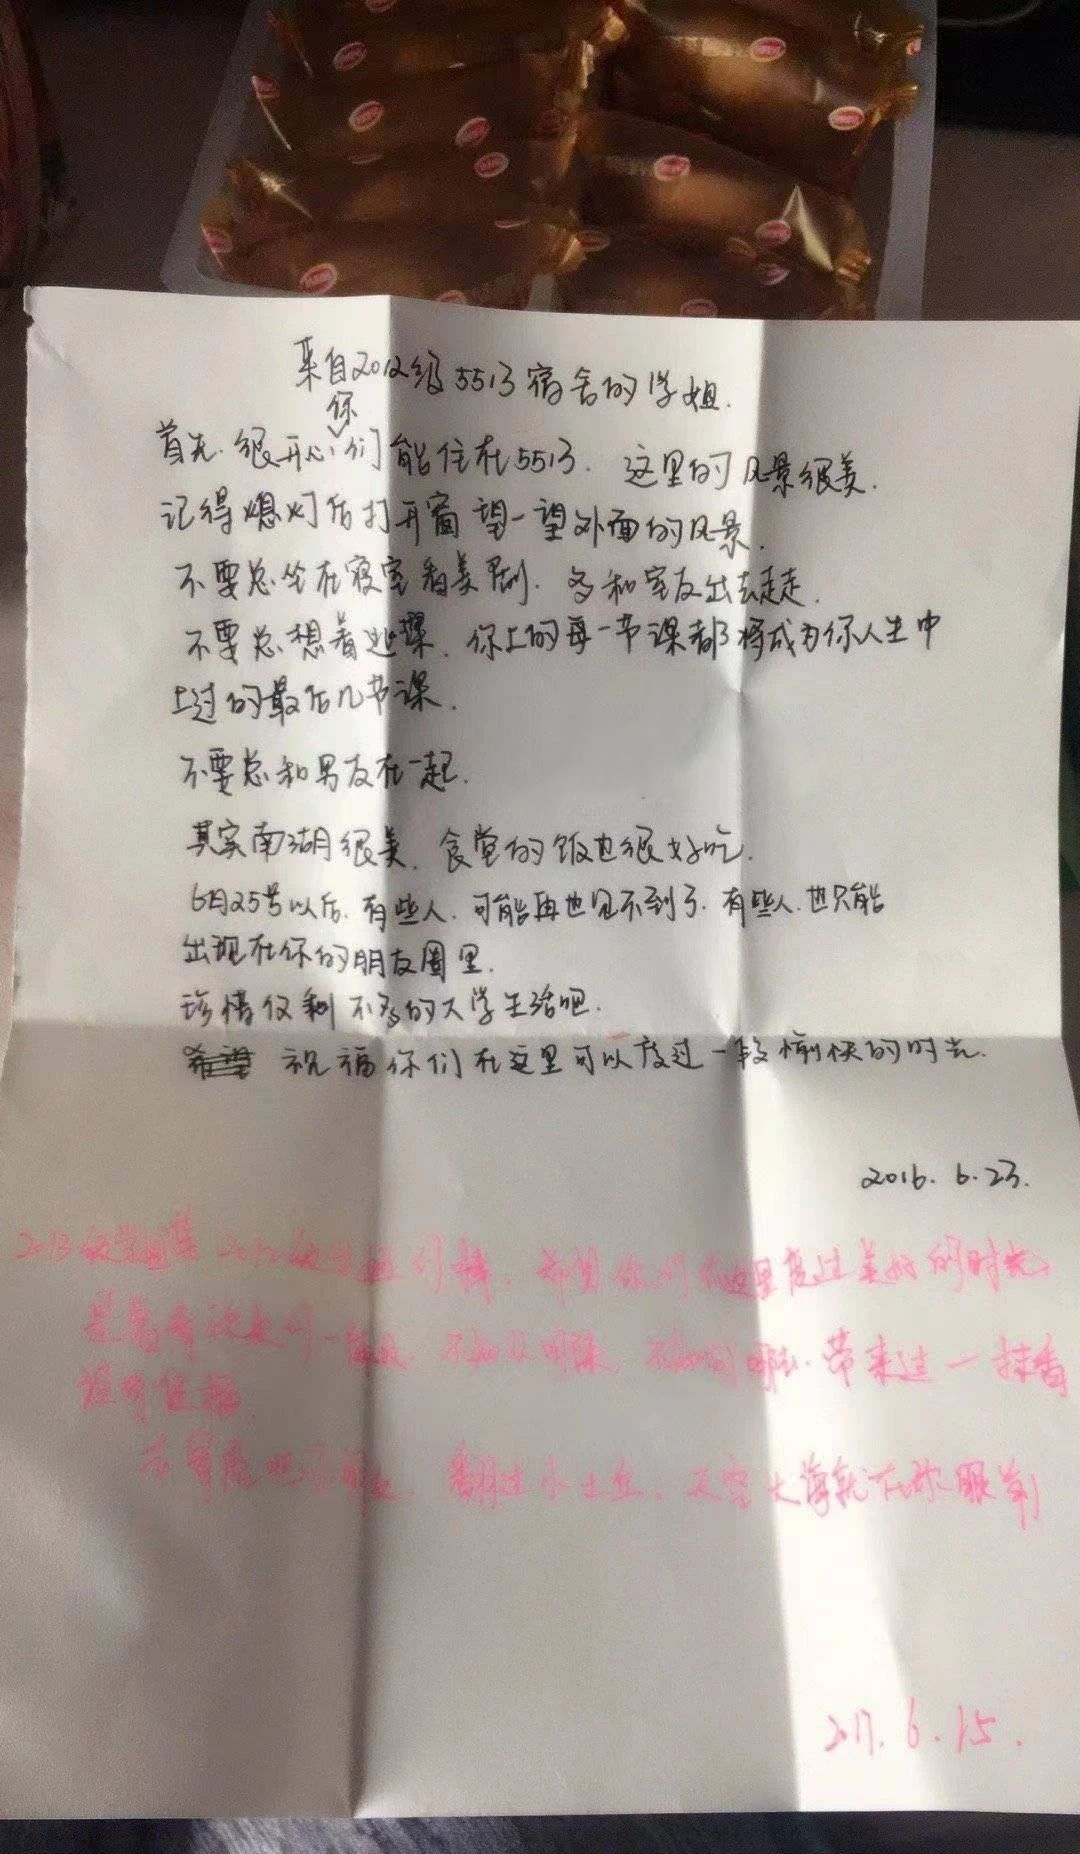 来自2012级5513宿舍的学姐.
首先.很开心你们能住在5513.这里的风景很美.
记得熄灯后打开窗望一望外面的风景.
不要总坐在寝室看美剧.多和室友出去走走.
不要总想着逃课.你上的每一节课都将成为你人生中
上过的最后几节课.
不要总和男友在一起.
其实南湖很美.食堂的饭也很好吃.
6月25号以后.有些人.可能再也见不到了.有些人.也只能
出现在你的朋友圈里.
珍惜仅剩不多的大学生活吧.
祝福你们在这里可以度过一段愉快的时光.
2016.6.23.
2013级 2012级 希望你们在这里度过美好的时光
带来过一抹香
翻过小土丘.天空大海就在你眼前
2017.6.15.